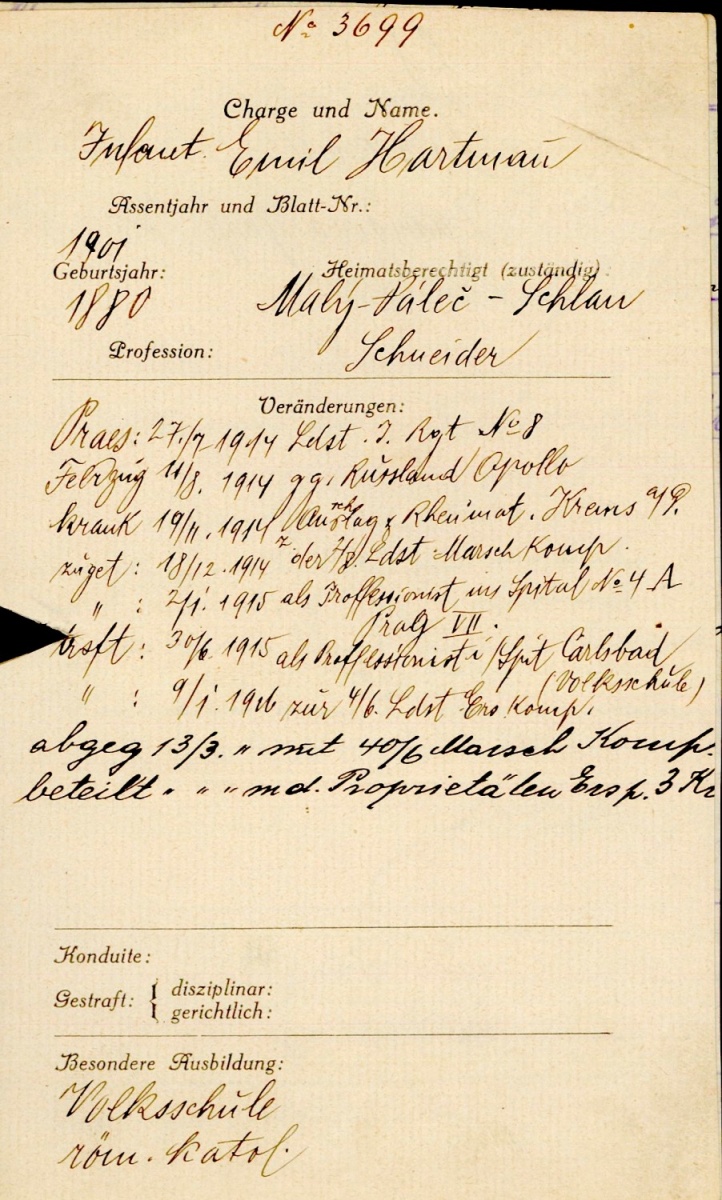 No 3699
Charge und Name.
Infant. Emil Hartman
Assentjahr und Blatt-Nr.:
1901
Geburtsjahr: Heimatsberechtigt (zuständig):
1880 Malý-Páleč - Schlan
Profession: Schneider
Veränderungen:
Praes: 27./7 1914 Ldst. I. Rgt No 8
Feldzug 11/8. 1914 gg. Russland Apollo
krank 19/11. 1914 Rheumat. Krems a/D.
zuget: 18/12. 1914 z. der 2/8. Ldst Marsch Komp.
" : 2/1. 1915 als Proffessionist ins Spital No 4 A
Prag VII.
trsft: 30/6. 1915 als Proffessionist i/Spit Carlsbad
(Volksschule)
" : 9/1. 1916 zur 4/6. Ldst Ers Komp.
abgeg 13/3. " mit 40/6 Marsch Komp.
beteilt " " " m d. Proprietäten Ersp. 3 Kr
Konduite:
Gestraft: { disziplinar:
gerichtlich:
Besondere Ausbildung:
Volksschule
röm. katol.